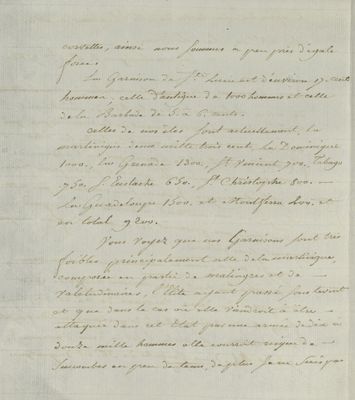 corvettes, ainsi nous sommes a peu près d'egale
force.
La Garnison de Ste Lucie est d'environ 17 cent
hommes, celle d'antigue de 1000 hommes et celle
de la Barbade de 5 à 6 cents.
Celles de nos isles sont actuellement, la
martinique deux mille trois cent, la Dominique
1000, la Grenade 1300, St Vincent 700, Tabago
750, St Eustache 650, St Christophe 800
la Guadeloupe 1500 et Montserra 400, et
au total 9200.
Vous voyez que nos Garnisons sont très
foibles principalement celle de la martinique,
composée en partie de malingres et de
valetudinaires, l'Elite ayant passé sous le vent
et que dans le cas où elle viendroit à être
attaquée dans cet Etat par une armée de dix à
douze mille hommes elle courroit risque de
succomber en peu de tems, de plus je ne suis pas